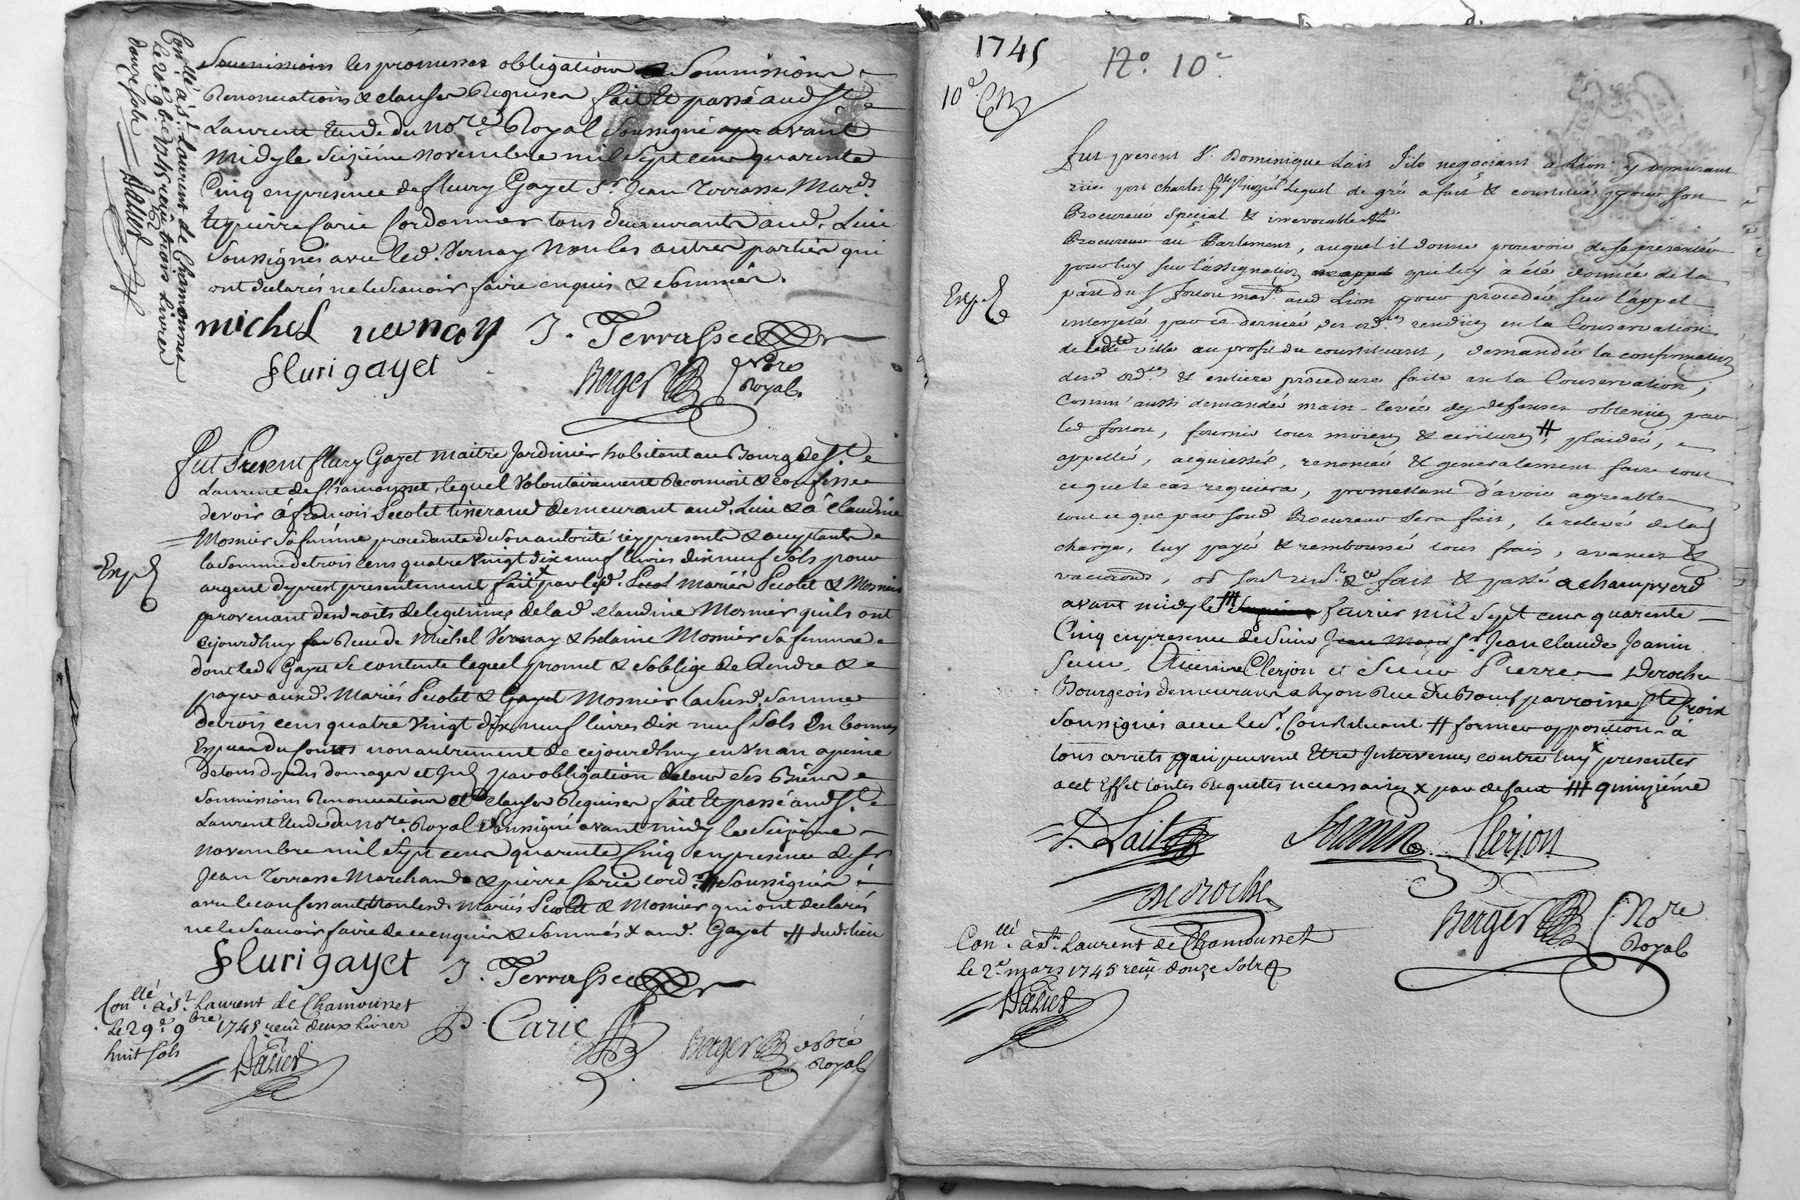 Con.llé à S.t Laurent de Chamousset
le 29e 9bre 1745 reçû trois livres
douze sols
Soumissions les promesses obligations Soumissions
Renonciations & clauses Requises fait Et passé aud St
Laurent Etude du Nore Royal soussigné avant
midy le Seiziéme novembre mil sept cens quarente
Cinq en presence de fleury Gayet Sr Jean Terrasse Mard
et pierre Carie Cordonnier tous demeurants aud. Lieu
Soussignés avec led. Vernay Non les autres parties qui
ont déclarés ne le Scavoir faire enquis & sommés.
michel vernay J. Terrasse
fluri gayet Berger Nore Royal
Fut Present fleury Gayet maitre Jardinier habitant au Bourg de St
Laurent de Chamousset, lequel Volontairement Reconnoit & confesse
devoir à françois Pecolet tisserand demeurant aud. Lieu & à Claudine
Mosnier sa femme procedante de son autorité icy presents & acceptants
la somme de trois cens quatre Vingt dix neuf livres dix neuf sols pour
Exp.
argent de prest presentement fait par lesd. mariés Pecolet & Mosnier
provenant des droits de legitimes de lad. claudine Mosnier qu'ils ont
cejourdhuy Reçue de Michel Vernay & helaine Mosnier sa femme
dont led. Gayet se contente lequel promet & s'oblige de Rendre &
payer auxd. Mariés Pecolet & Mosnier lasusd. somme
de trois cens quatre Vingt dix neuf livres dix neuf sols En bonnes
Especes du cours non autrement de cejourdhuy en Un an a peine
de tous depens domages et par obligation de tous ses Biens
Soumissions Renonciations et clauses Requises fait Et passé aud St
Laurent Etude du Nore Royal soussigné avant midy le Seiziéme
novembre mil sept cens quarente Cinq en presence de Sr
Jean Terrasse Marchand & pierre Carie cord.r # Soussignés
avec le confessant Non lesd. Mariés Pecolet & Mosnier qui ont declarés
ne le Scavoir faire de ce enquis & sommés x aud. Gayet # dud. lieu
fluri gayet J. Terrasse
Con.llé à S.t Laurent de Chamousset
le 29e 9bre 1745 reçû deux livres
huit sols
P. Carie
Berger Nore Royal
1745
No. 10e
10e
fut present Sr. Dominique Lait fils negociant à Lion y demeurant
ruë port charlet lequel de gré a fait & constitué pour son
Procureur special & irrevocable Me
Procureur au Parlement, auquel il donne pouvoir de se presenter
pour luy sur l'assignation qui luy à été donnée de la
Exp.
part du Sr mard. aud Lion pour proceder sur l'appel
interjetté par ce dernier des ordces rendües en la Conservation
de lade ville au profit du constituant, demander la confirmation
desd. ordces & entiere procedure faite en la Conservation,
Comm' aussi demander main-levée des defenses obtenües par
led , fournir tous moiens & ecritures #, plaider,
appeller, acquiesser, renoncer & generalement faire tout
ce que le cas requiera, promettant d'avoir agreable
tout ce que par sond Procureur sera fait, le relever de lad
charge, luy payer & rembourser tous frais, avances &
vacations, fait & passé a champverd
avant midy le ### fevrier mil sept cens quarente
Cinq en presence de Sr Jean Claude Joanin
Sieur Clerjon et Sieur Pierre Deroche
Bourgeois demeurants a Lyon Rue du Boeuf parroisse Ste Croix
Soussignés avec led. Sr. Constituant # former opposition à
tous arrets qui peuvent Etre Intervenus contre luy x presenter
a cet Effet toutes Requetes necessaires x par defaut ### quinziéme
D. Lait Joanin Clerjon
deroche
Berger Nore Royal
Con.llé à St. Laurent de Chamousset
le 2e mars 1745 reçû douze sols